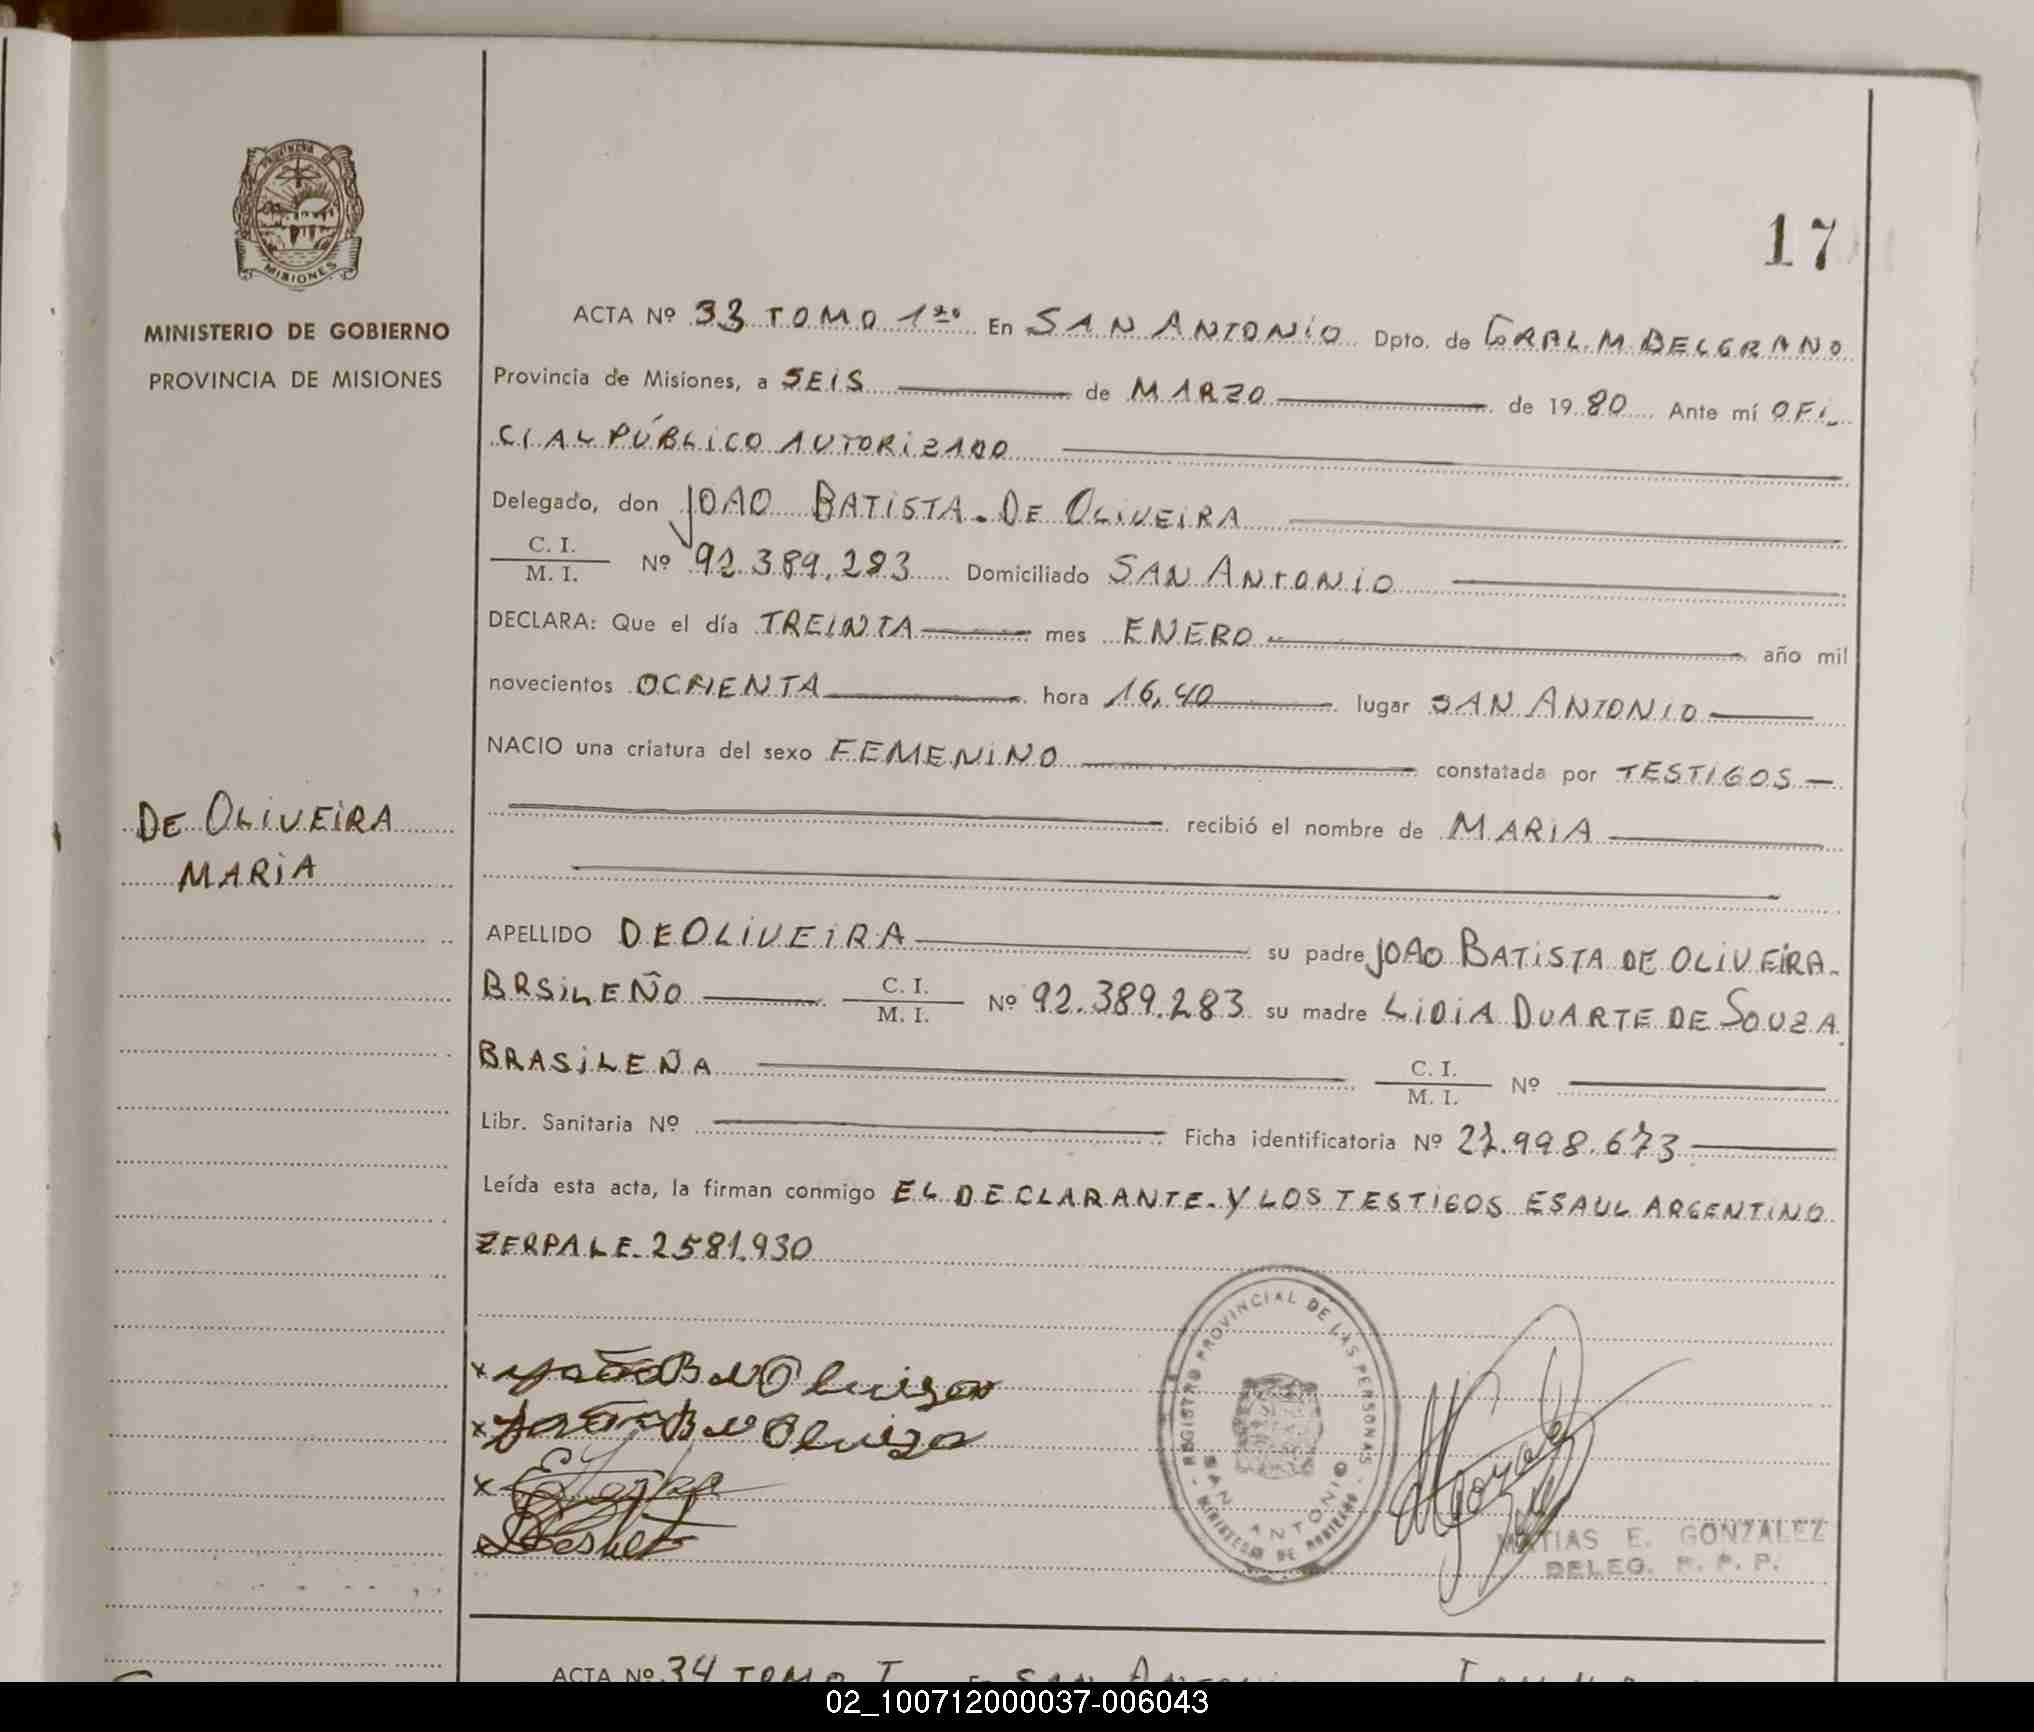 17
PROVINCIA DE
MISIONES
MINISTERIO DE GOBIERNO
PROVINCIA DE MISIONES
ACTA Nº 33 TOMO 1ro En SAN ANTONIO Dpto. de GRAL. M. BELGRANO
Provincia de Misiones, a SEIS de MARZO de 1980 Ante mí OFI-
CIAL PÚBLICO AUTORIZADO
Delegado, don JOAO BATISTA. DE OLIVEIRA
C. I.
M. I. Nº 92.389.283 Domiciliado SAN ANTONIO
DECLARA: Que el día TREINTA mes ENERO año mil
novecientos OCHENTA hora 16,40 lugar SAN ANTONIO
NACIO una criatura del sexo FEMENINO constatada por TESTIGOS
recibió el nombre de MARIA
DE OLIVEIRA
MARIA
APELLIDO DE OLIVEIRA su padre JOAO BATISTA DE OLIVEIRA.
BRSILEÑO C. I.
M. I. Nº 92.389.283 su madre LIDIA DUARTE DE SOUZA
BRASILEÑA C. I.
M. I. Nº
Libr. Sanitaria Nº Ficha identificatoria Nº 27.998.673
Leída esta acta, la firman conmigo EL DECLARANTE. Y LOS TESTIGOS ESAUL ARGENTINO
ZERPA L.E. 2581.930
REGISTRO PROVINCIAL DE LAS PERSONAS
SAN ANTONIO
MATIAS E. GONZALEZ
DELEG. R. P. P.
ACTA Nº 34 TOMO I En SAN ANTONI
02_100712000037-006043